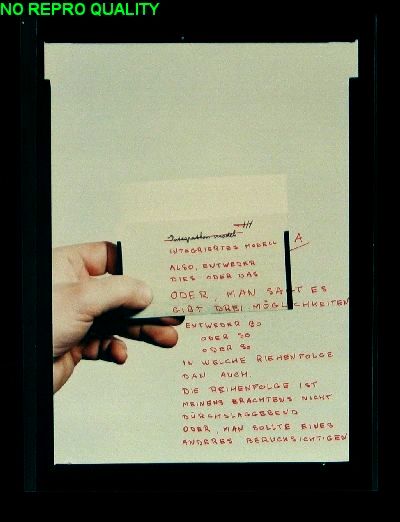 NO REPRO QUALITY
Integration model
INTEGRIERTES MODELL
A
ALSO, ENTWEDER
DIES ODER DAS
ODER, MAN SAGT ES
GIBT DREI MÖGLICHKEITEN
ENTWEDER SO
ODER SO
ODER SO
IN WELCHE RIEHENFOLGE
DAN AUCH.
DIE REIHENFOLGE IST
MEINENS ERACHTENS NICHT
DÜRCHSLAGGEBEND
ODER, MAN SOLLTE EINES
ANDERES BERUCKSICHTIGEN